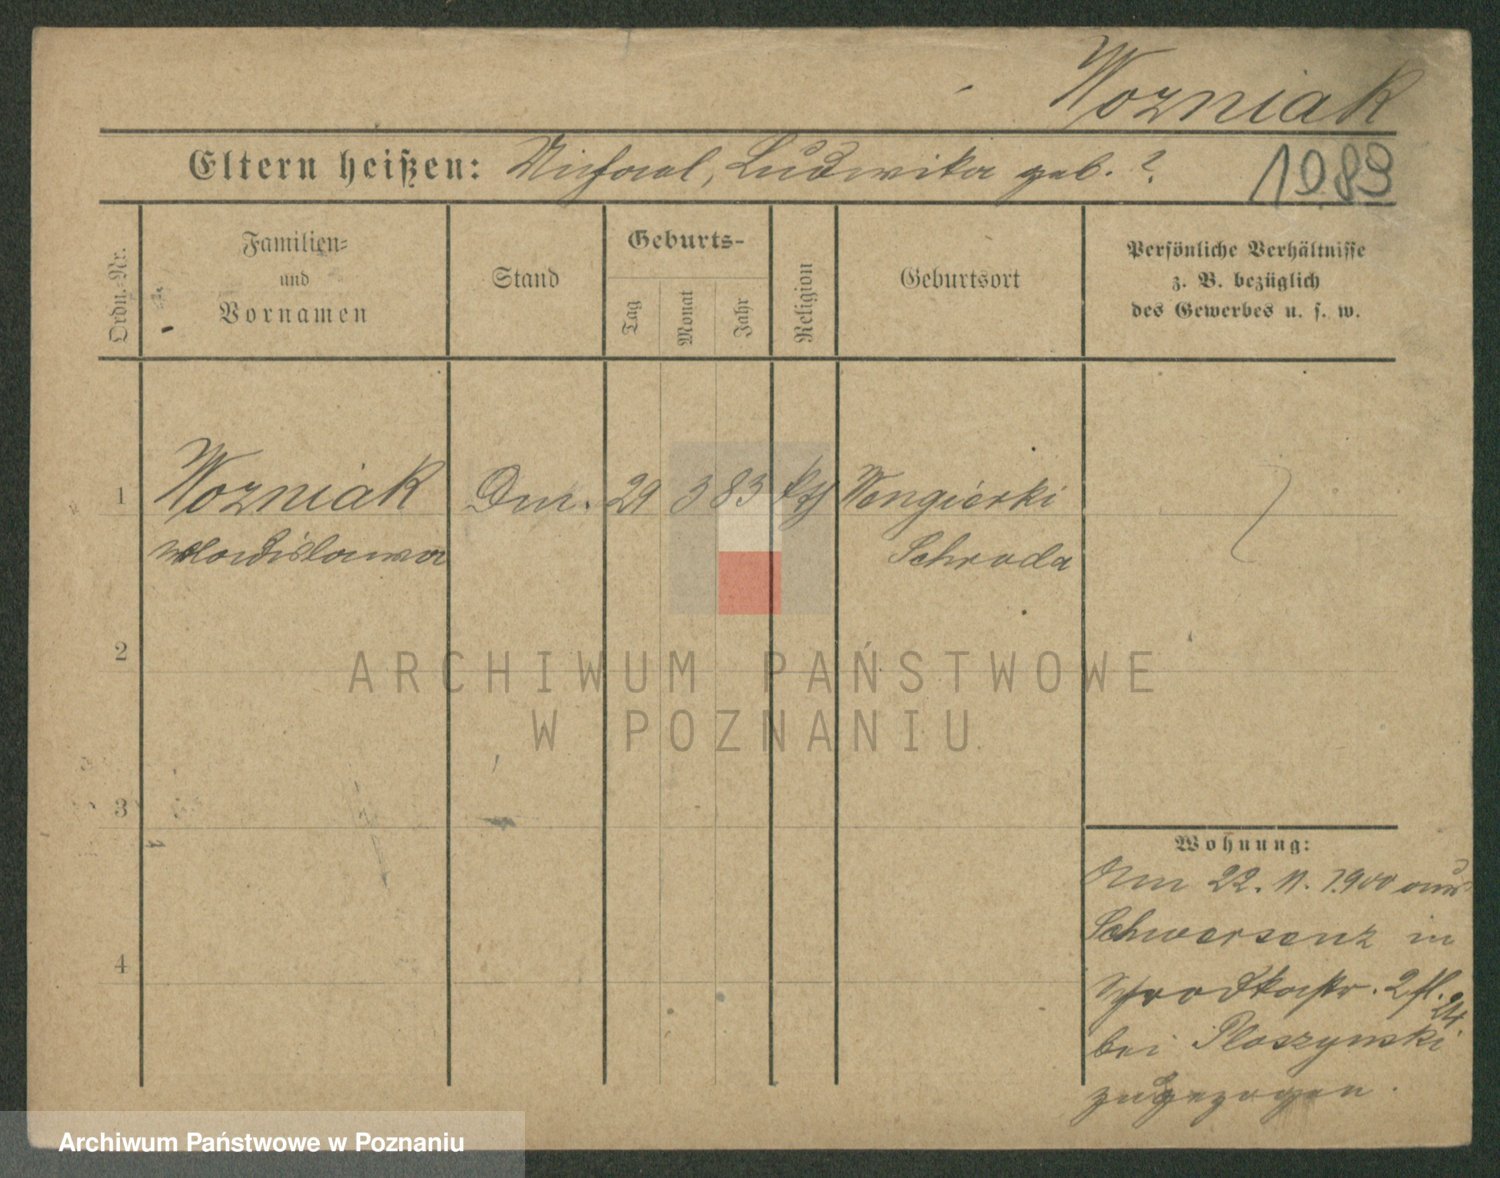 Wozniak
Eltern heißen: Michael, Ludwika geb. ?
1983
Ordn.-Nr.
Familien-
und
Vornamen
Stand
Geburts-
Tag
Monat
Jahr
Religion
Geburtsort
Persönliche Verhältnisse
z. B. bezüglich
des Gewerbes u. s. w.
1 Wozniak Dm. 29 3 83 kth Wengierki
Wladislawa Schroda
2
3
4
Wohnung:
Am 22. 11. 1900 aus
Schwersenz in
bei Ploszynski
zugezogen.
ARCHIWUM PAŃSTWOWE
W POZNANIU
Archiwum Państwowe w Poznaniu